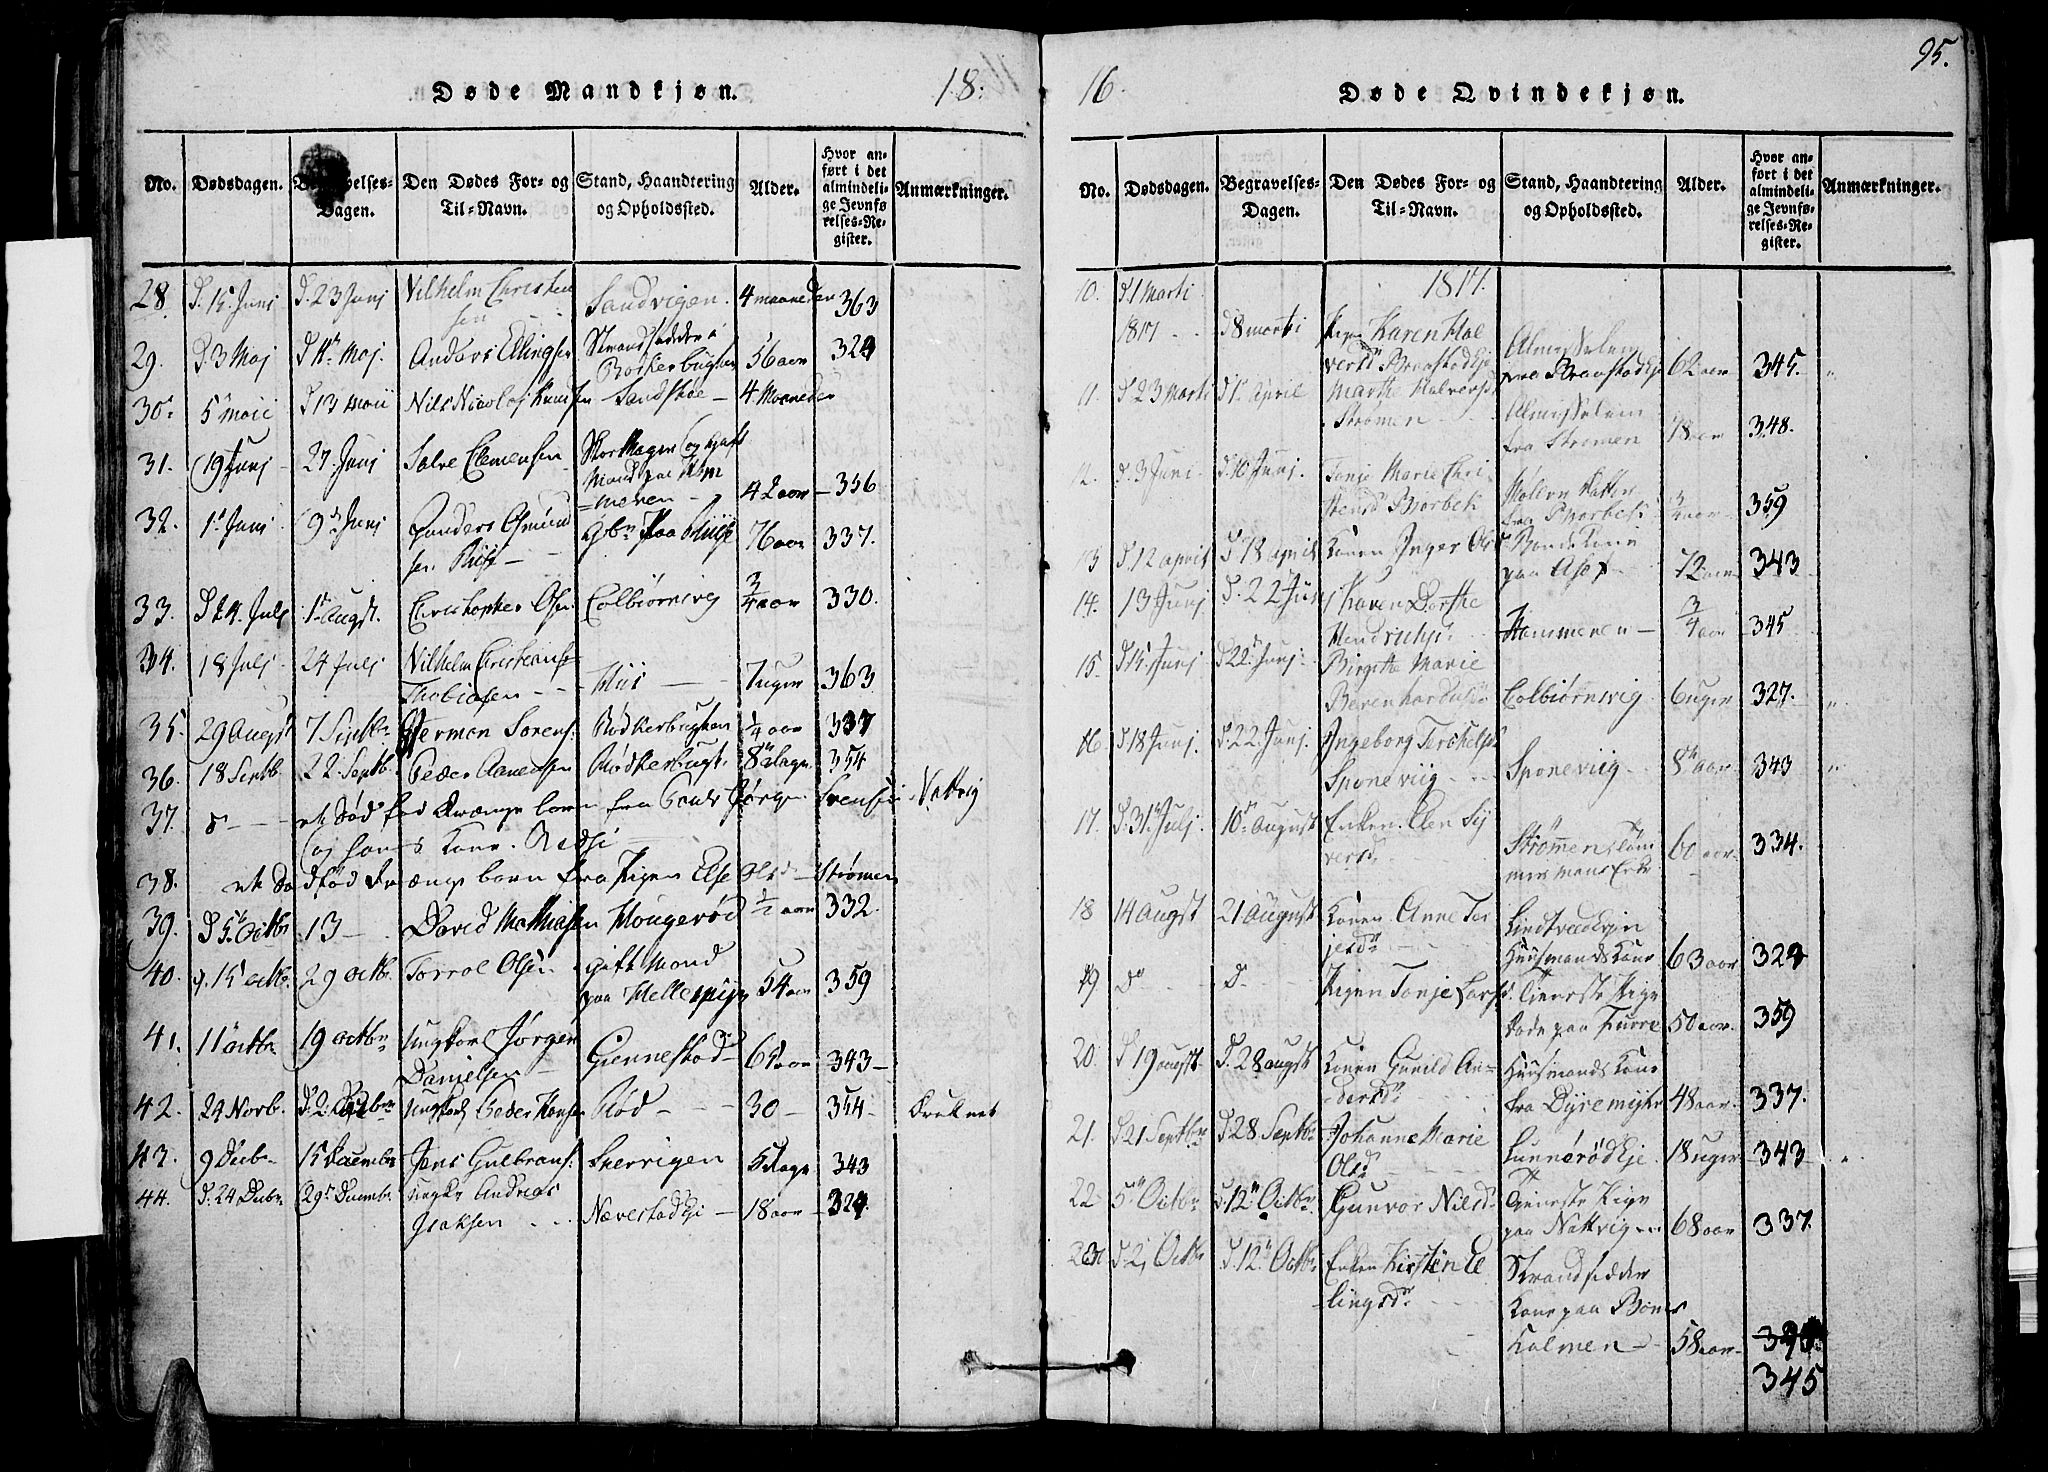 Døde Mandkjøn.
18.
No.
Dødsdagen.
Begravelses-Dagen.
Den Dødes For- og Til-Navn.
Stand, Haandtering og Opholdssted.
Alder.
Hvor anført i det almindelige Jevnførelses-Register.
Anmærkninger.
28. D. 15. Junj D. 23 Junj Vilhelm Christen
sen Sandvigen. 4 maaneder 363
29. D. 3 Maj D. 11te Maj. Anders Ellingsen Strandsidder i
Rødkerbugten 56 aar 324
30. 5 maii D 13 maii Nils Nicolaj Knudsen Sandskøe 4. Maaneder
31. 19 Junj 27. Junj Salve Clemensen
meren 42 aar 356
32. 1 Junj 9 Junj Gunders Asmund
sen Riise Gbr. paa Riise 76 aar 337.
33. D. 24. Julj 1. Augst. Christopher Ols: Colbiørnsvig 3/4 aar 330.
34. 18 Julj 24 Julj Vilhelm Christians
Thobiasen Hiis 7 uger 363
35. 29 Augst 7 Septbr Herman Sørens: Rødkerbugten 1/4 aar 337
36. 18 Septb. 22. Septb. Peder Aanensen Rødkerbugt. 8 Dage 354
37. et død fød Drænge barn fra Jørgen Svensen Nattvig
og hans Kone.
38. et Dødfød Drænge barn fra Pigen Else Olsd. Strømen
39. D 5. Octbr 13 David Mathiasen Hougerød 1/2 aar 332.
40. d. 15 octb. 29 octb. Torrol Olsen gift Mand
paa Hellemyr 54 aar 359
41. 11 octbr. 19 octbr Ungkarl Jørgen
Danielsen Giennestad 65 aar 343
42. 24 Novb. Ungkarl Peder Hansen Rød 30 354 Druknet
43. 9 Decbr 15 Decembr Jens Gulbrans: Sverrigen 5 Dage 343
44. D. 24 Decbr 29 Decembr Ungkr Andreas
Isaksen Nævestad Eje 18 aar 324.
16.
Døde Qvindekjøn.
95.
No.
Dødsdagen.
Begravelses-Dagen.
Den Dødes For- og Til-Navn.
Stand, Haandtering og Opholdssted.
Alder.
Hvor anført i det almindelige Jevnførelses-Register.
Anmærkninger.
1817.
10. D 1 Marti
1817 D 8 marti Pigen Karen Hal
versd Bravstad Eje Almisselem
fra Bravstad Eje 62 aar 345.
11. D 23 Marti D 1 April Marthe Halversd
Strømen Almisselem
fra Strømen 78 aar 348.
12. D. 3 Juni D. 10 Junj. Tonje Marie Chri
stensd Morbek
fra Morbek 359
13 D 12 april D 18 april Konen Inger Bonde Kone
paa 72 aar 343
14. 13 Junj D. 22 Junj Karen Dorthe
Hendrichs. Kammeren 3/4 aar 345
15. D 15 Junj D 22 Junj. Birgitte Marie
Berenhardus Colbiørnsvig 6 uger 327.
16. D 18 Junj. D. 22. Junj. Ingeborg Terkels
Sponeviig Sponeviig 8 aar 343
17. D. 31 Julj. 10 August Enken. Elen Sij
versd Strømmen, tøm
mermans Enke 60 aar 334.
18 14 Augst 21 August Konen Anne Ter
jesd Lindtved Ejen
Huusmands Kone 63 aar 324
19 D D Pigen Tonje Lars Tieneste Pige
døde paa Furre 50 aar 359
20. D 19 augst D. 28 augst Konen Gunild An
dersd Huusmands Kone
fra Dyremyhr 48 aar. 337.
21. D 21 Septbr D. 28 Septbr Johanne Marie
Olsd Lunnerød Eje. 18 uger 343
22 5 Octbr D. 12 Octbr. Gunvor Nilsd Tieneste Pige
paa Nattvigen 68 aar 337.
23 D. 2 Octbr D. 12. Octbr Enken Kirsten El
lingsd Strandsidder
Kone paa
Kalmen 58 aar
345